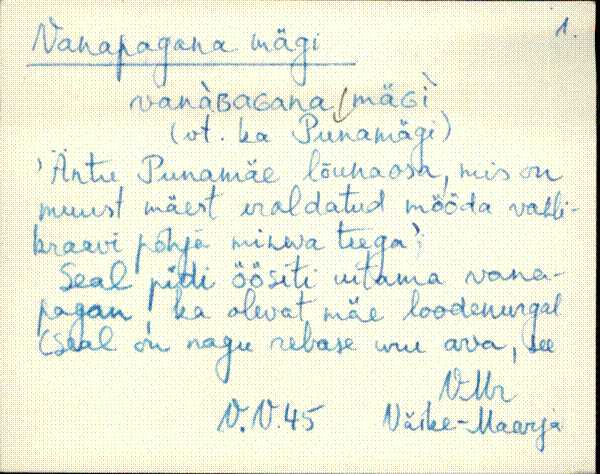 1.
Vanapagana mägi
vanàBAGana mäGì
(vt. ka Punamägi)
'Äntu Punamäe lõunaosa, mis on
muust mäest eraldatud mööda valli-
kraavi põhja minwa teega';
Seal pidi öösiti uitama vana-
pagan, ka olevat mäe loodenurgal
(seal on nagu rebase uru ava, see
V.Mr
V.V.45 Väike-Maarja